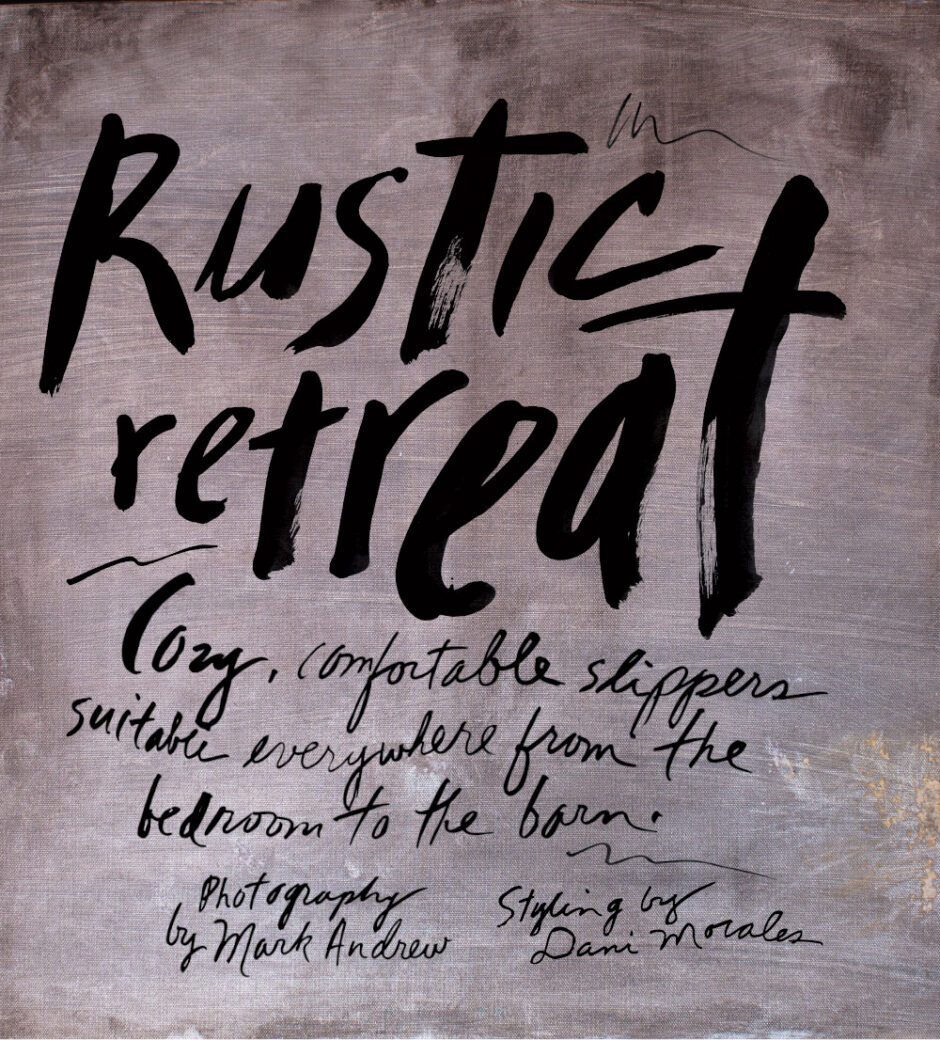 Rustic
retreat
Cozy, comfortable slippers
suitable everywhere from the
bedroom to the barn.
Photography
by Mark Andrew
Styling by
Dani Morales